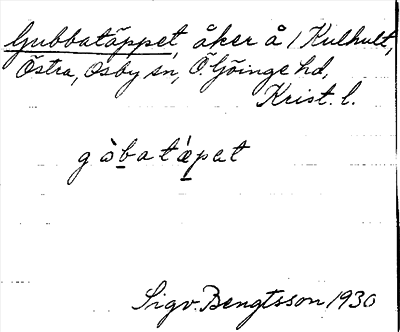 Gubbatäppet, åker å 1 Kulhult,
Östra, Osby sn, Ö. Göinge hd,
Krist. l.
gòbatápet
Sigv. Bengtsson 1930